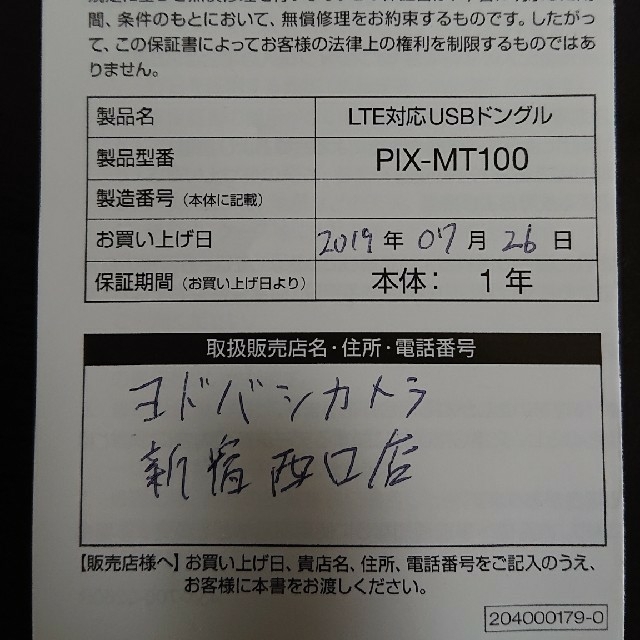 間、条件のもとにおいて、無償修理をお約束するものです。したがっ
て、この保証書によってお客様の法律上の権利を制限するものではあ
りません。
製品名 LTE対応USBドングル
製品型番 PIX-MT100
製造番号（本体に記載）
お買い上げ日 2019年 07月 26日
保証期間（お買い上げ日より） 本体： 1年
取扱販売店名・住所・電話番号
ヨドバシカメラ
新宿西口店
【販売店様へ】お買い上げ日、貴店名、住所、電話番号をご記入のうえ、
お客様に本書をお渡しください。
204000179-0